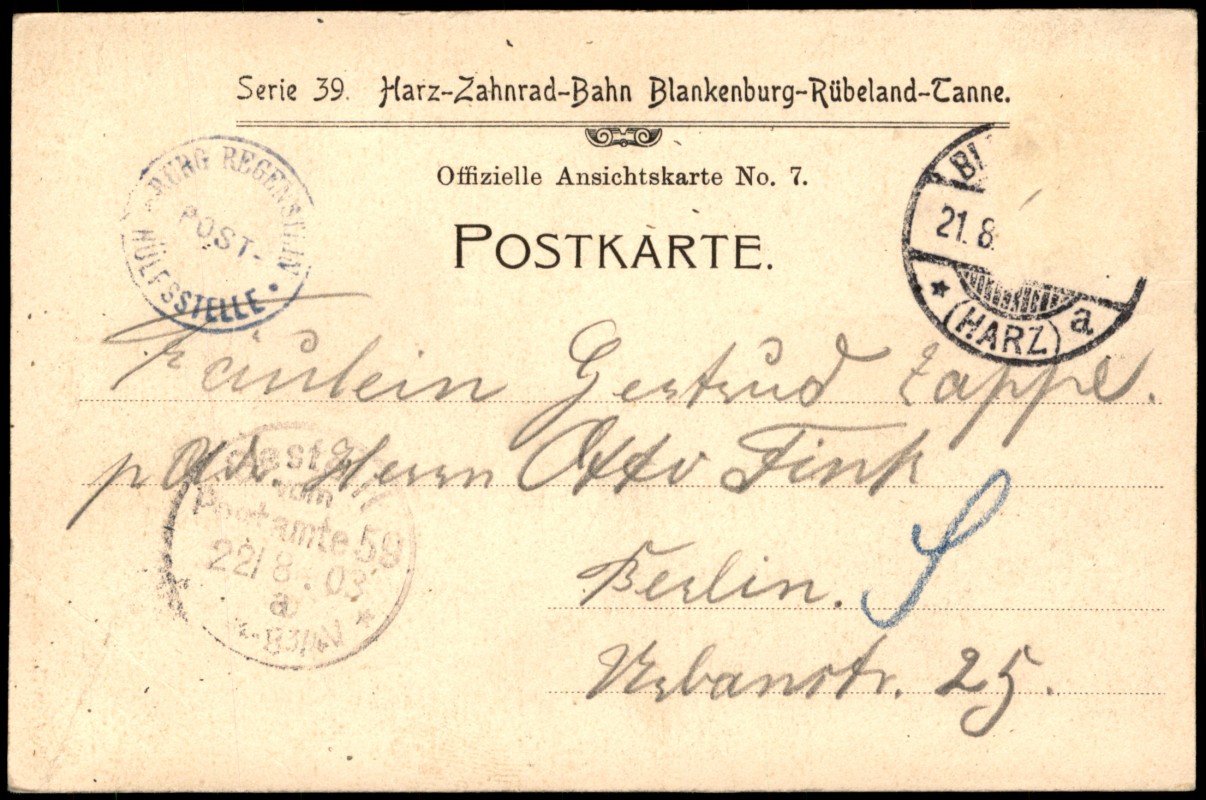 Serie 39. Harz-Zahnrad-Bahn Blankenburg-Rübeland-Tanne.
Offizielle Ansichtskarte No. 7.
POSTKARTE.
BURG REGENSTEIN
POST-
HÜLFSSTELLE
BL
21. 8.
(HARZ) a
Fräulein Gertrud Zappe.
p Adr. Herrn Otto Fink
Berlin. S
Urbanstr. 25.
Bestellt
vom
Postamte 59
22/8. 03
a